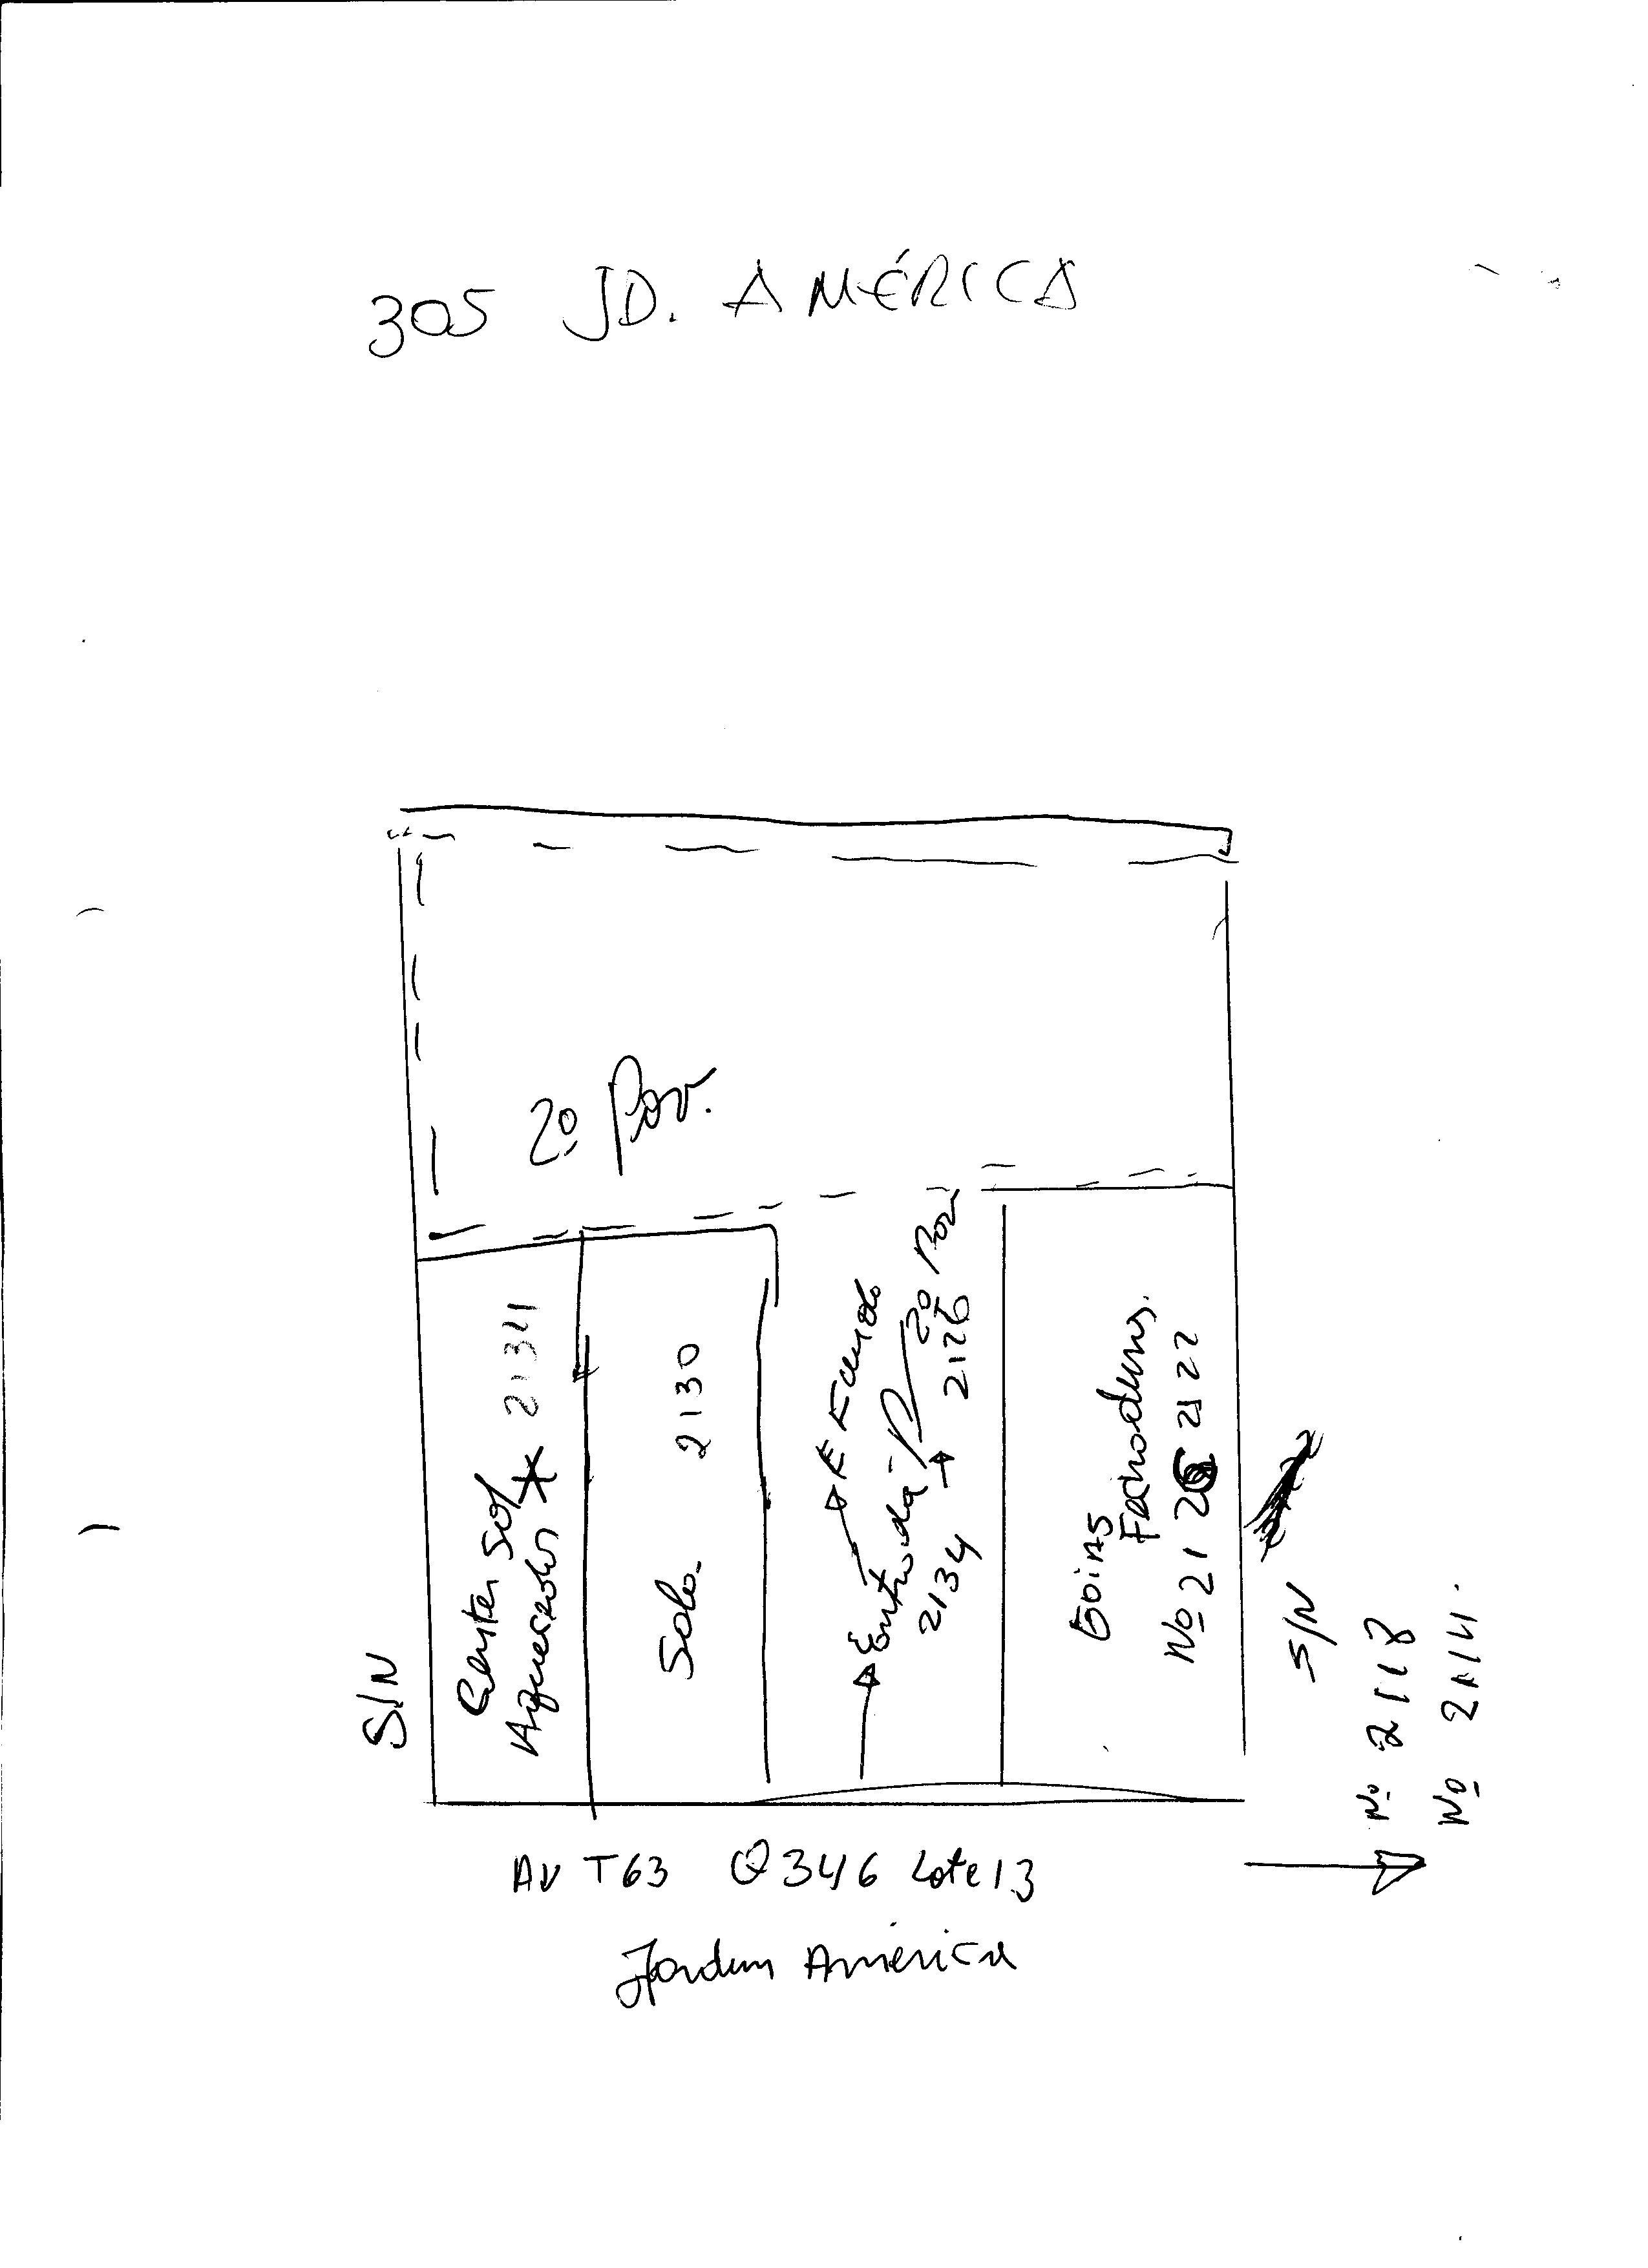 305 JD. AMÉRICA
2º Pav.
S/N
Center Sol
Aquecedor * 2134
Sala 2130
Entrada P/ 2º Pav
2134 → 2126
Goias
Nº 21 2122
S/N
Nº 2118
Nº 2114.
AV T63 Q346 Lote 13
Jardim América